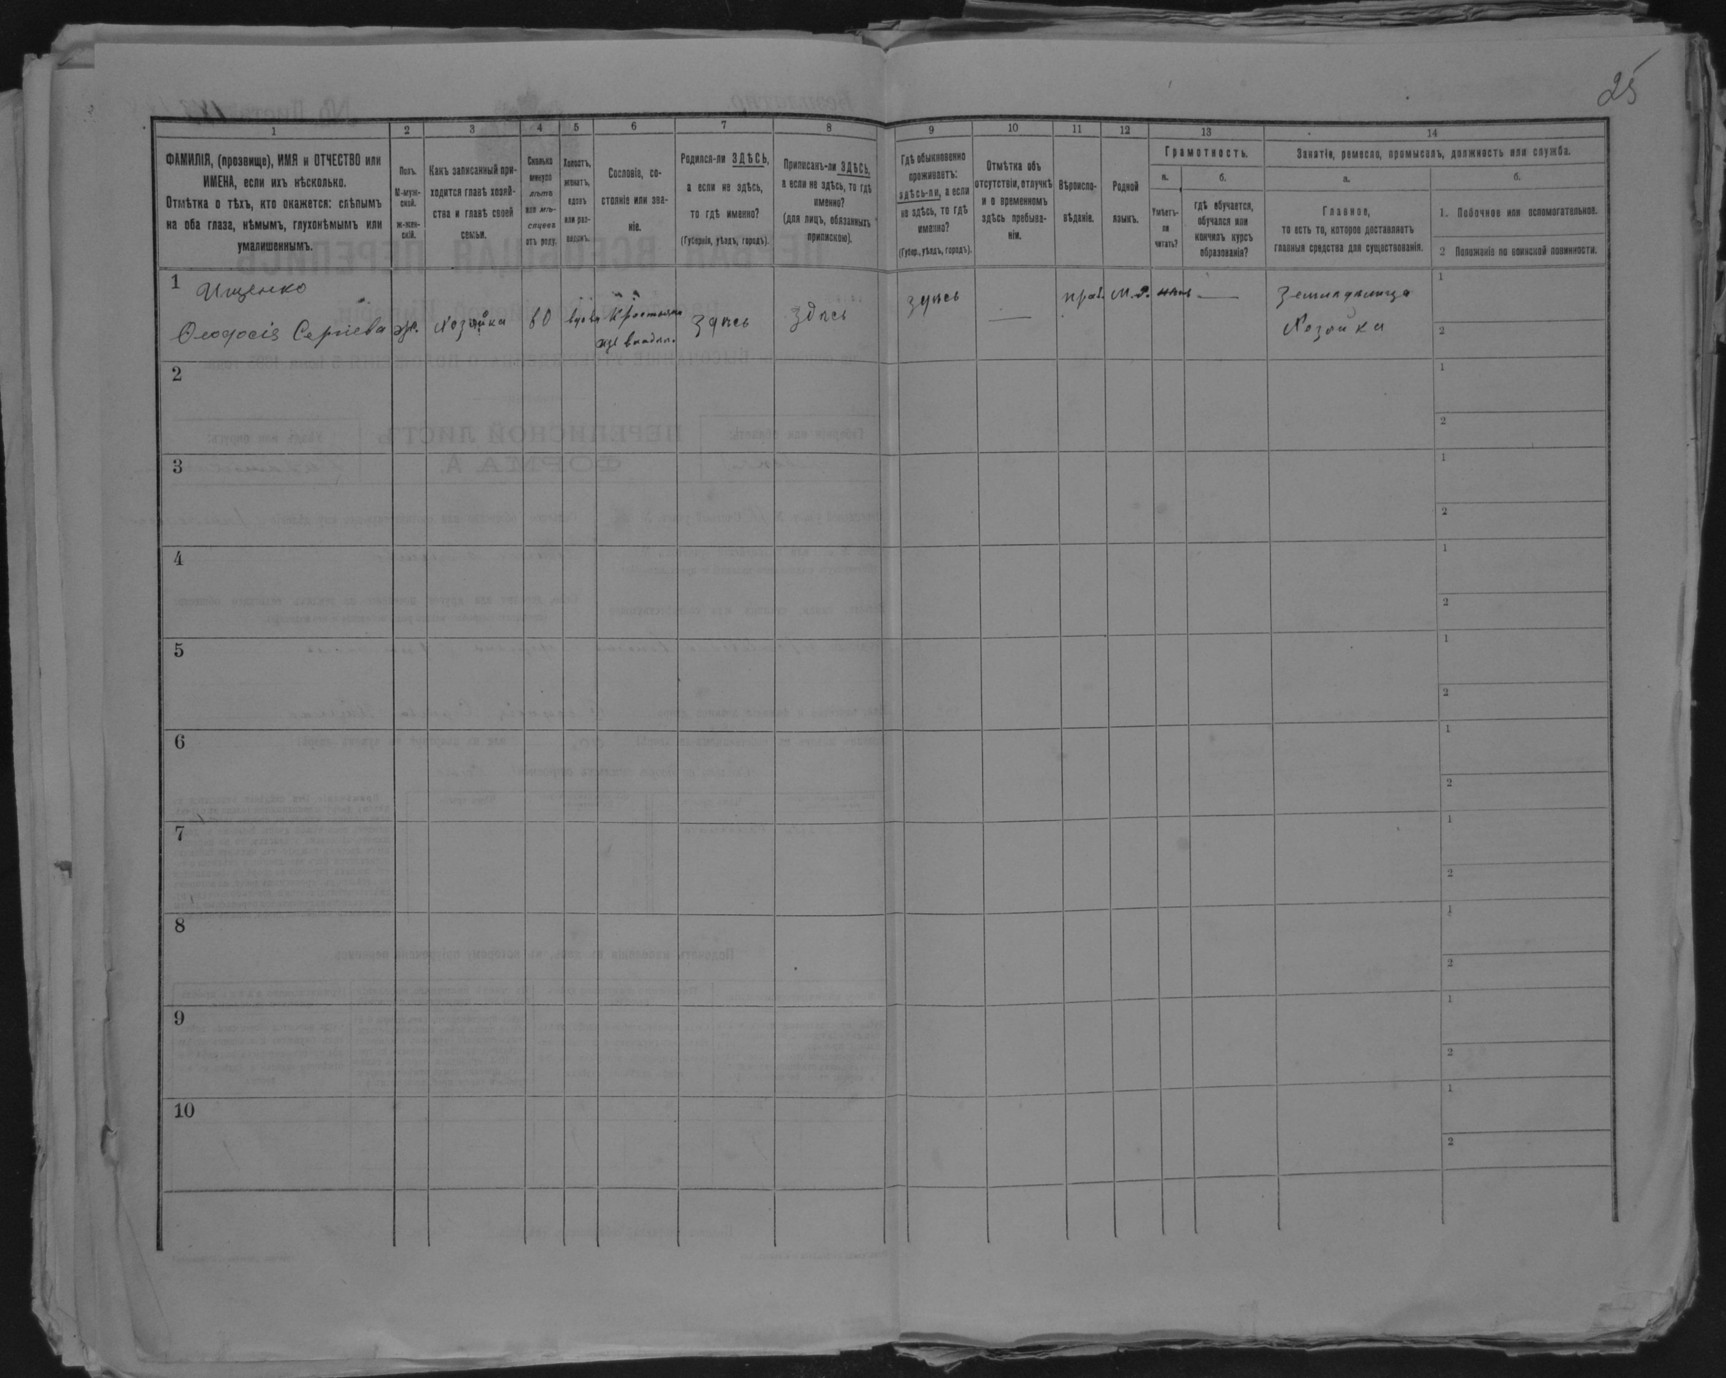 25
1 2 3 4 5 6 7 8 9 10 11 12 13 14
ФАМИЛІЯ, (прозвище), ИМЯ и ОТЧЕСТВО или
ИМЕНА, если ихъ нѣсколько.
Отмѣтка о тѣхъ, кто окажется: слѣпымъ
на оба глаза, нѣмымъ, глухонѣмымъ или
умалишеннымъ.
Полъ.
М-муж-
ской.
ж-жен-
скій.
Какъ записанный при-
ходится главѣ хозяй-
ства и главѣ своей
семьи.
Сколько
минуло
лѣтъ
или мѣ-
сяцевъ
отъ роду.
Холостъ,
женатъ,
вдовъ
или раз-
веденъ.
Сословіе, со-
стояніе или зва-
ніе.
Родился-ли ЗДѢСЬ,
а если не здѣсь,
то гдѣ именно?
(Губернія, уѣздъ, городъ).
Приписанъ-ли ЗДѢСЬ,
а если не здѣсь, то гдѣ
именно?
(для лицъ, обязанныхъ
припискою).
Гдѣ обыкновенно
проживаетъ:
здѣсь-ли, а если
не здѣсь, то гдѣ
именно?
(Губер., уѣздъ, городъ).
Отмѣтка объ
отсутствіи, отлучкѣ
и о временномъ
здѣсь пребыва-
ніи.
Вѣроиспо-
вѣданіе.
Родной
языкъ.
Грамотность.
а.
Умѣетъ-
ли
читать?
б.
гдѣ обучается,
обучался или
кончилъ курсъ
образованія?
Занятіе, ремесло, промыселъ, должность или служба.
а.
Главное,
то есть то, которое доставляетъ
главныя средства для существованія.
б.
1. Побочное или вспомогательное.
2 Положеніе по воинской повинности.
1 Ищенко
Ѳеодосія Сергіева
ж.
Хозяйка
60
вдова
Крестьянка
изъ владѣл.
Здѣсь
Здѣсь
Здѣсь
—
прав.
М.Р.
нѣтъ
—
Земледѣлица
Хозяйка
1
2
2
1
2
3
1
2
4
1
2
5
1
2
6
1
2
7
1
2
8
1
2
9
1
2
10
1
2